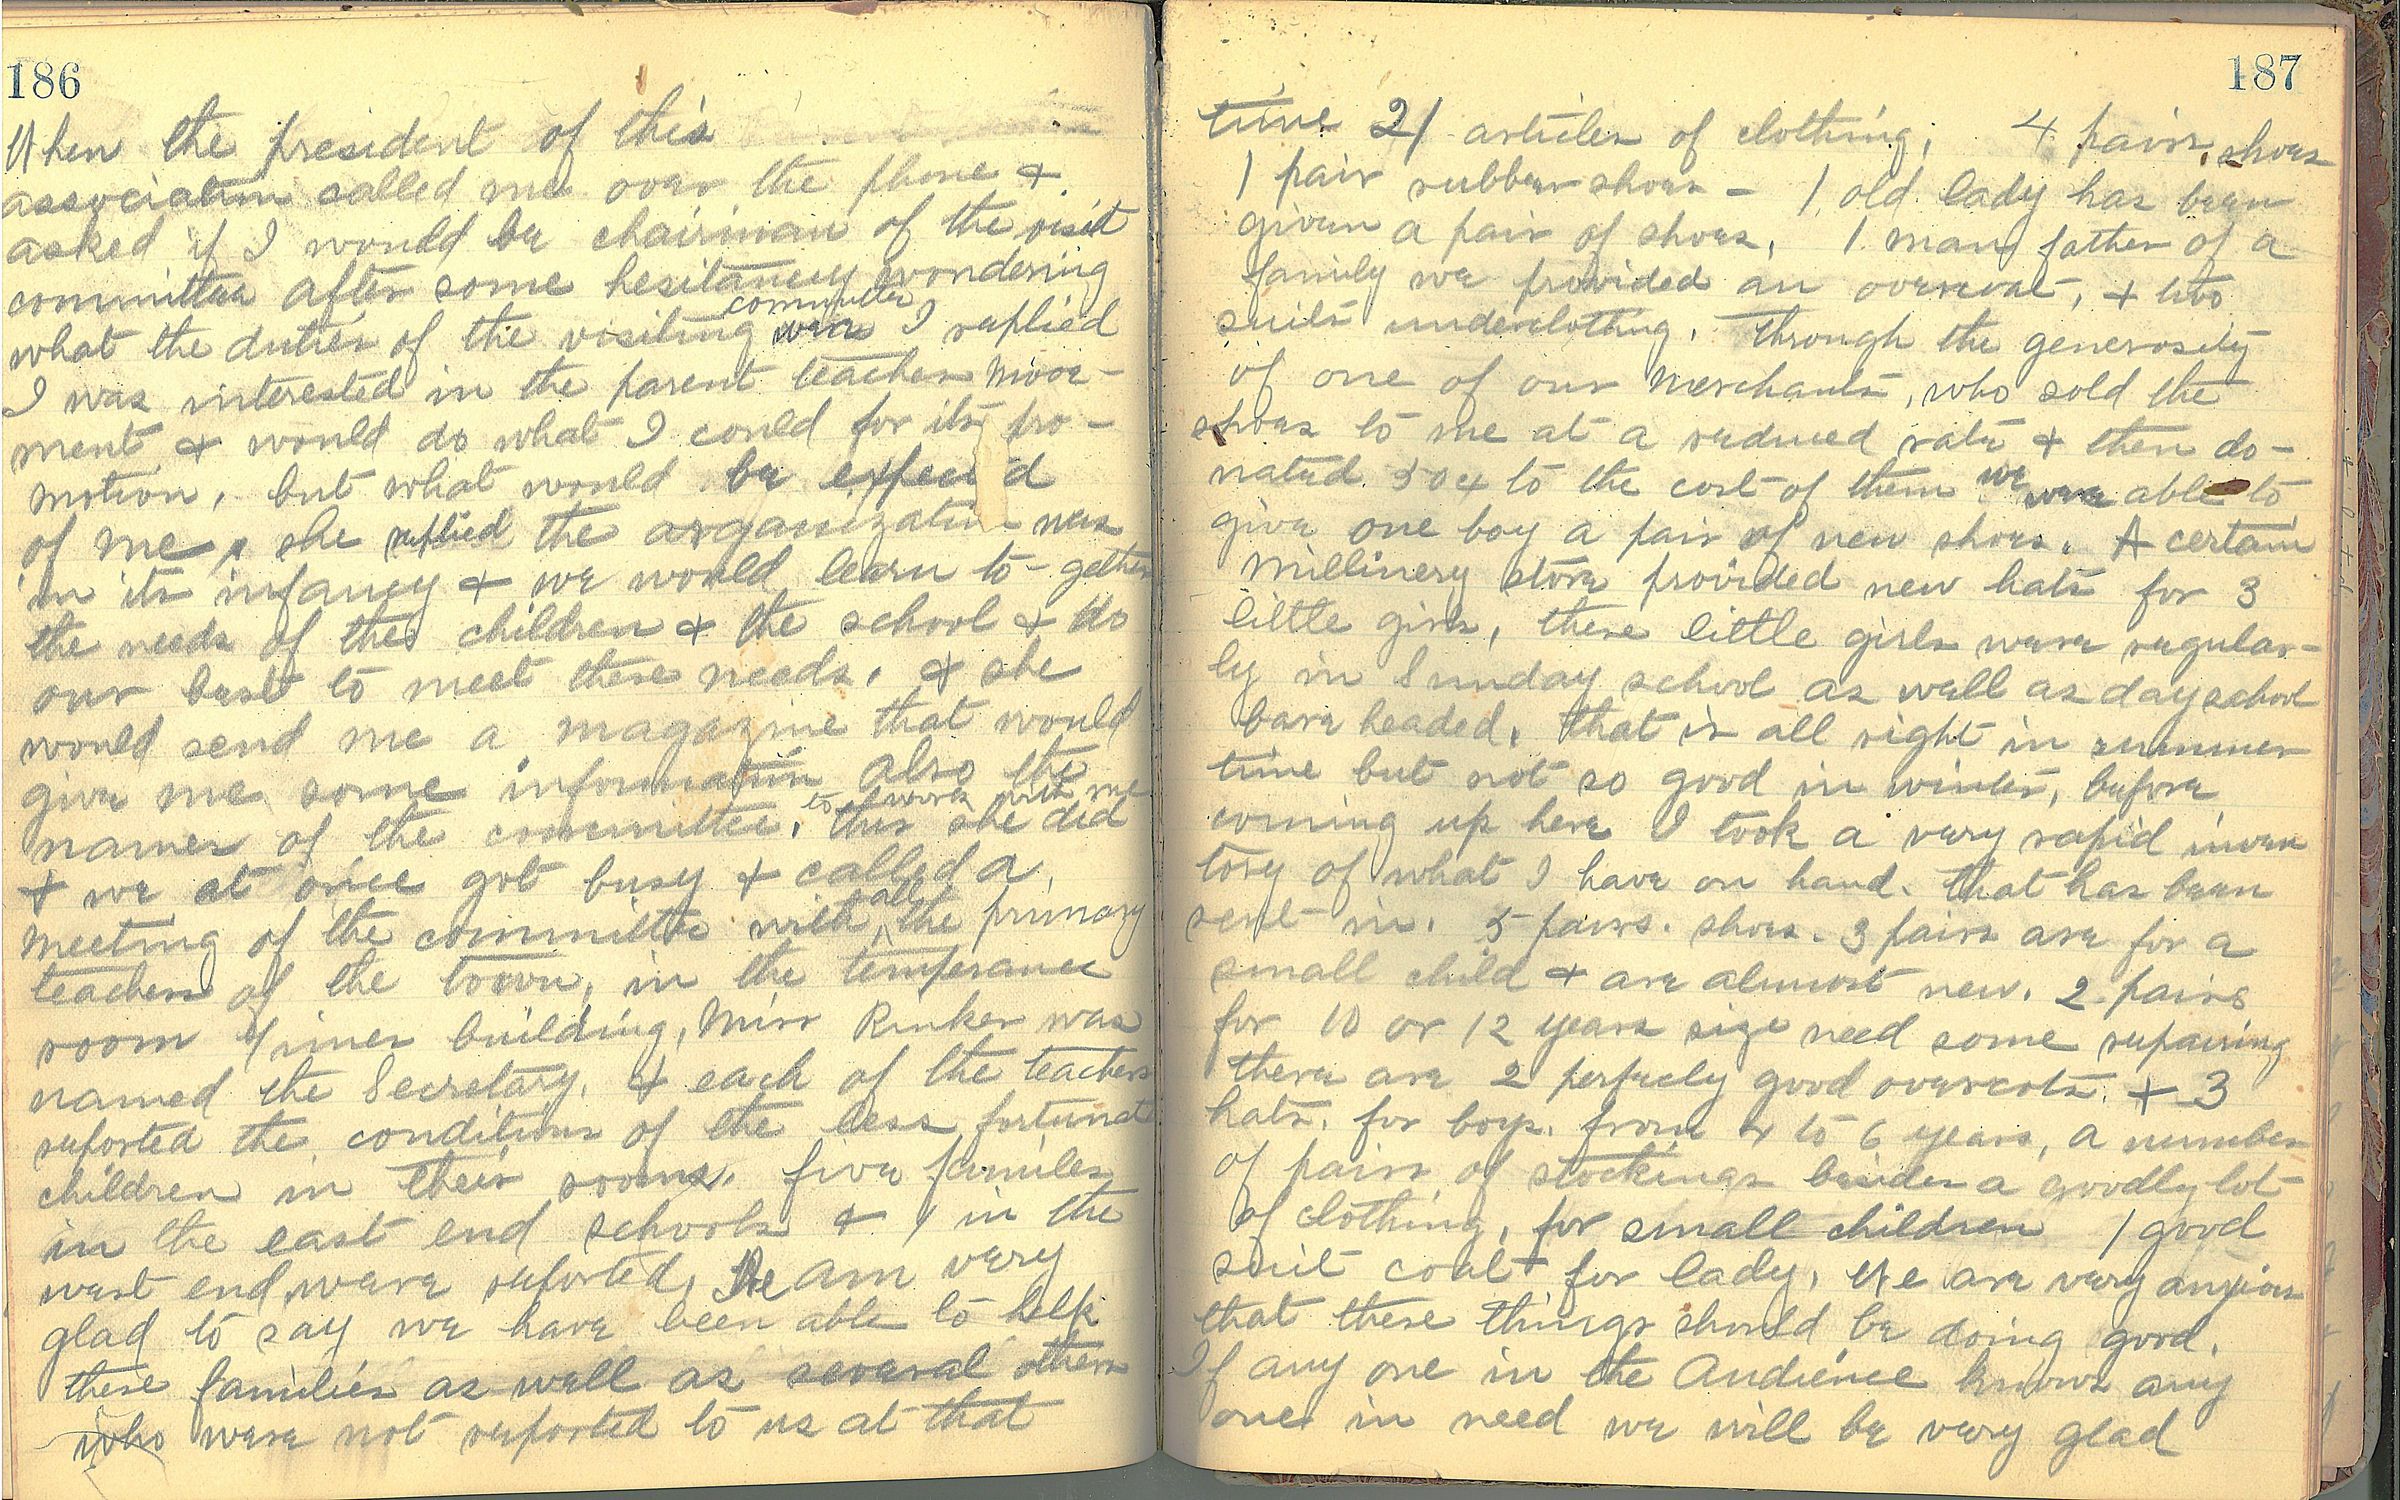 186
When the president of this
association called me over the phone &
asked if I would be chairman of the visit
committee after some hesitancy wondering
what the duties of the visiting committee were I replied
I was interested in the parent teacher move-
ment & would do what I could for its pro-
motion, but what would be expected
of me, she replied the organization was
in its infancy & we would learn to-gether
the needs of the children & the school & do
our best to meet these needs, & she
would send me a magazine that would
give me some information also the
names of the committee, to work with me this she did
& we at once got busy & called a
meeting of the committee with all the primary
teachers of the town, in the temperance
room Times building, Miss Rinker was
named the Secretary, & each of the teachers
reported the conditions of the less fortunate
children in their rooms. five familes
in the east end schools & 1 in the
west end were reported, We am very
glad to say we have been able to help
these families as well as several others
who were not reported to us at that
187
time 21 articles of clothing, 4 pairs shoes
1 pair rubber shoes - 1 old lady has been
given a pair of shoes, 1 man father of a
family we provided an overcoat, & two
suits underclothing. Through the generosity
of one of our merchants, who sold the
shoes to me at a reduced rate & then do-
nated 50¢ to the cost of them we were able to
give one boy a pair of new shoes. A certain
millinery store provided new hats for 3
little girls, these little girls were regular-
ly in Sunday school as well as day school
bare headed, that is all right in summer
time but not so good in winter, before
coming up here I took a very rapid inven
tory of what I have on hand. that has been
sent in. 5 pairs. shoes. 3 pairs are for a
small child & are almost new. 2 pairs
for 10 or 12 years size need some repairing
there are 2 perfecly good overcots. & 3
hats. for boys. from 4 to 6 years, a number
of pairs of stockings besides a goodly lot
of clothing, for small children 1 good
suit coat for lady, We are very anxious
that these things should be doing good.
If any one in the Audience knows any
one in need we will be very glad